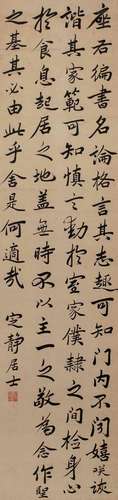 座右編書名論格言其志趣可知门内不嬉咲詼
諧其家範可知慎言動於室家僕隸之間檢身心
於食息起居之地蓋無時不以主一之敬為念作聖
之基其必由此乎舍是何適哉
定靜居士